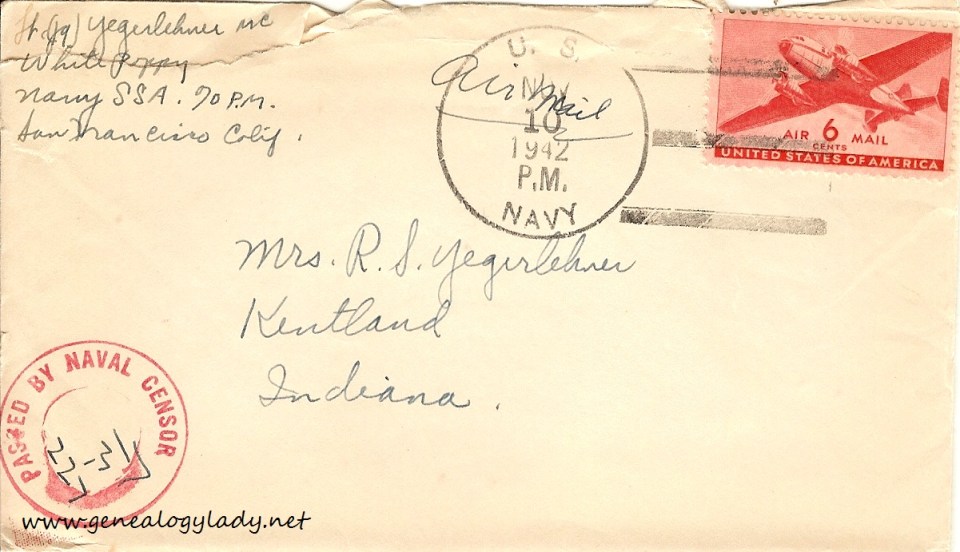 Lt (jg) Yegerlehner MC
White Poppy
Navy SSA. % P.M.
San Francisco Calif.
Air Mail
U. S.
NOV
10
1942
P.M.
NAVY
AIR 6 MAIL
CENTS
UNITED STATES OF AMERICA
Mrs. R. S. Yegerlehner
Kentland
Indiana.
PASSED BY NAVAL CENSOR
www.genealogylady.net